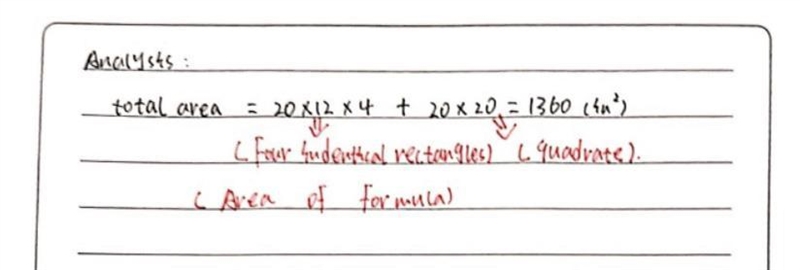 Analysts :
total area = 20 × 12 × 4 + 20 × 20 = 1360 (in²)
(Four indentical rectangles) (quadrate).
(Area of formula)